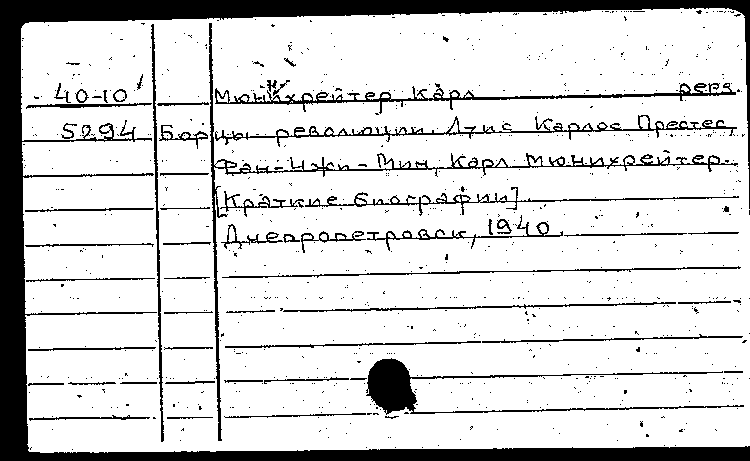 40-10 Мюнихрейтер, Карл перс.
5294 Борцы революции. Луис Карлос Престес,
Фан-Чжи-Мин, Карл Мюнихрейтер.
[Краткие биографии].
Днепропетровск, 1940.